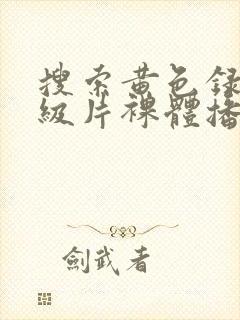 搜索黄色録
級片裸體播
劍武者